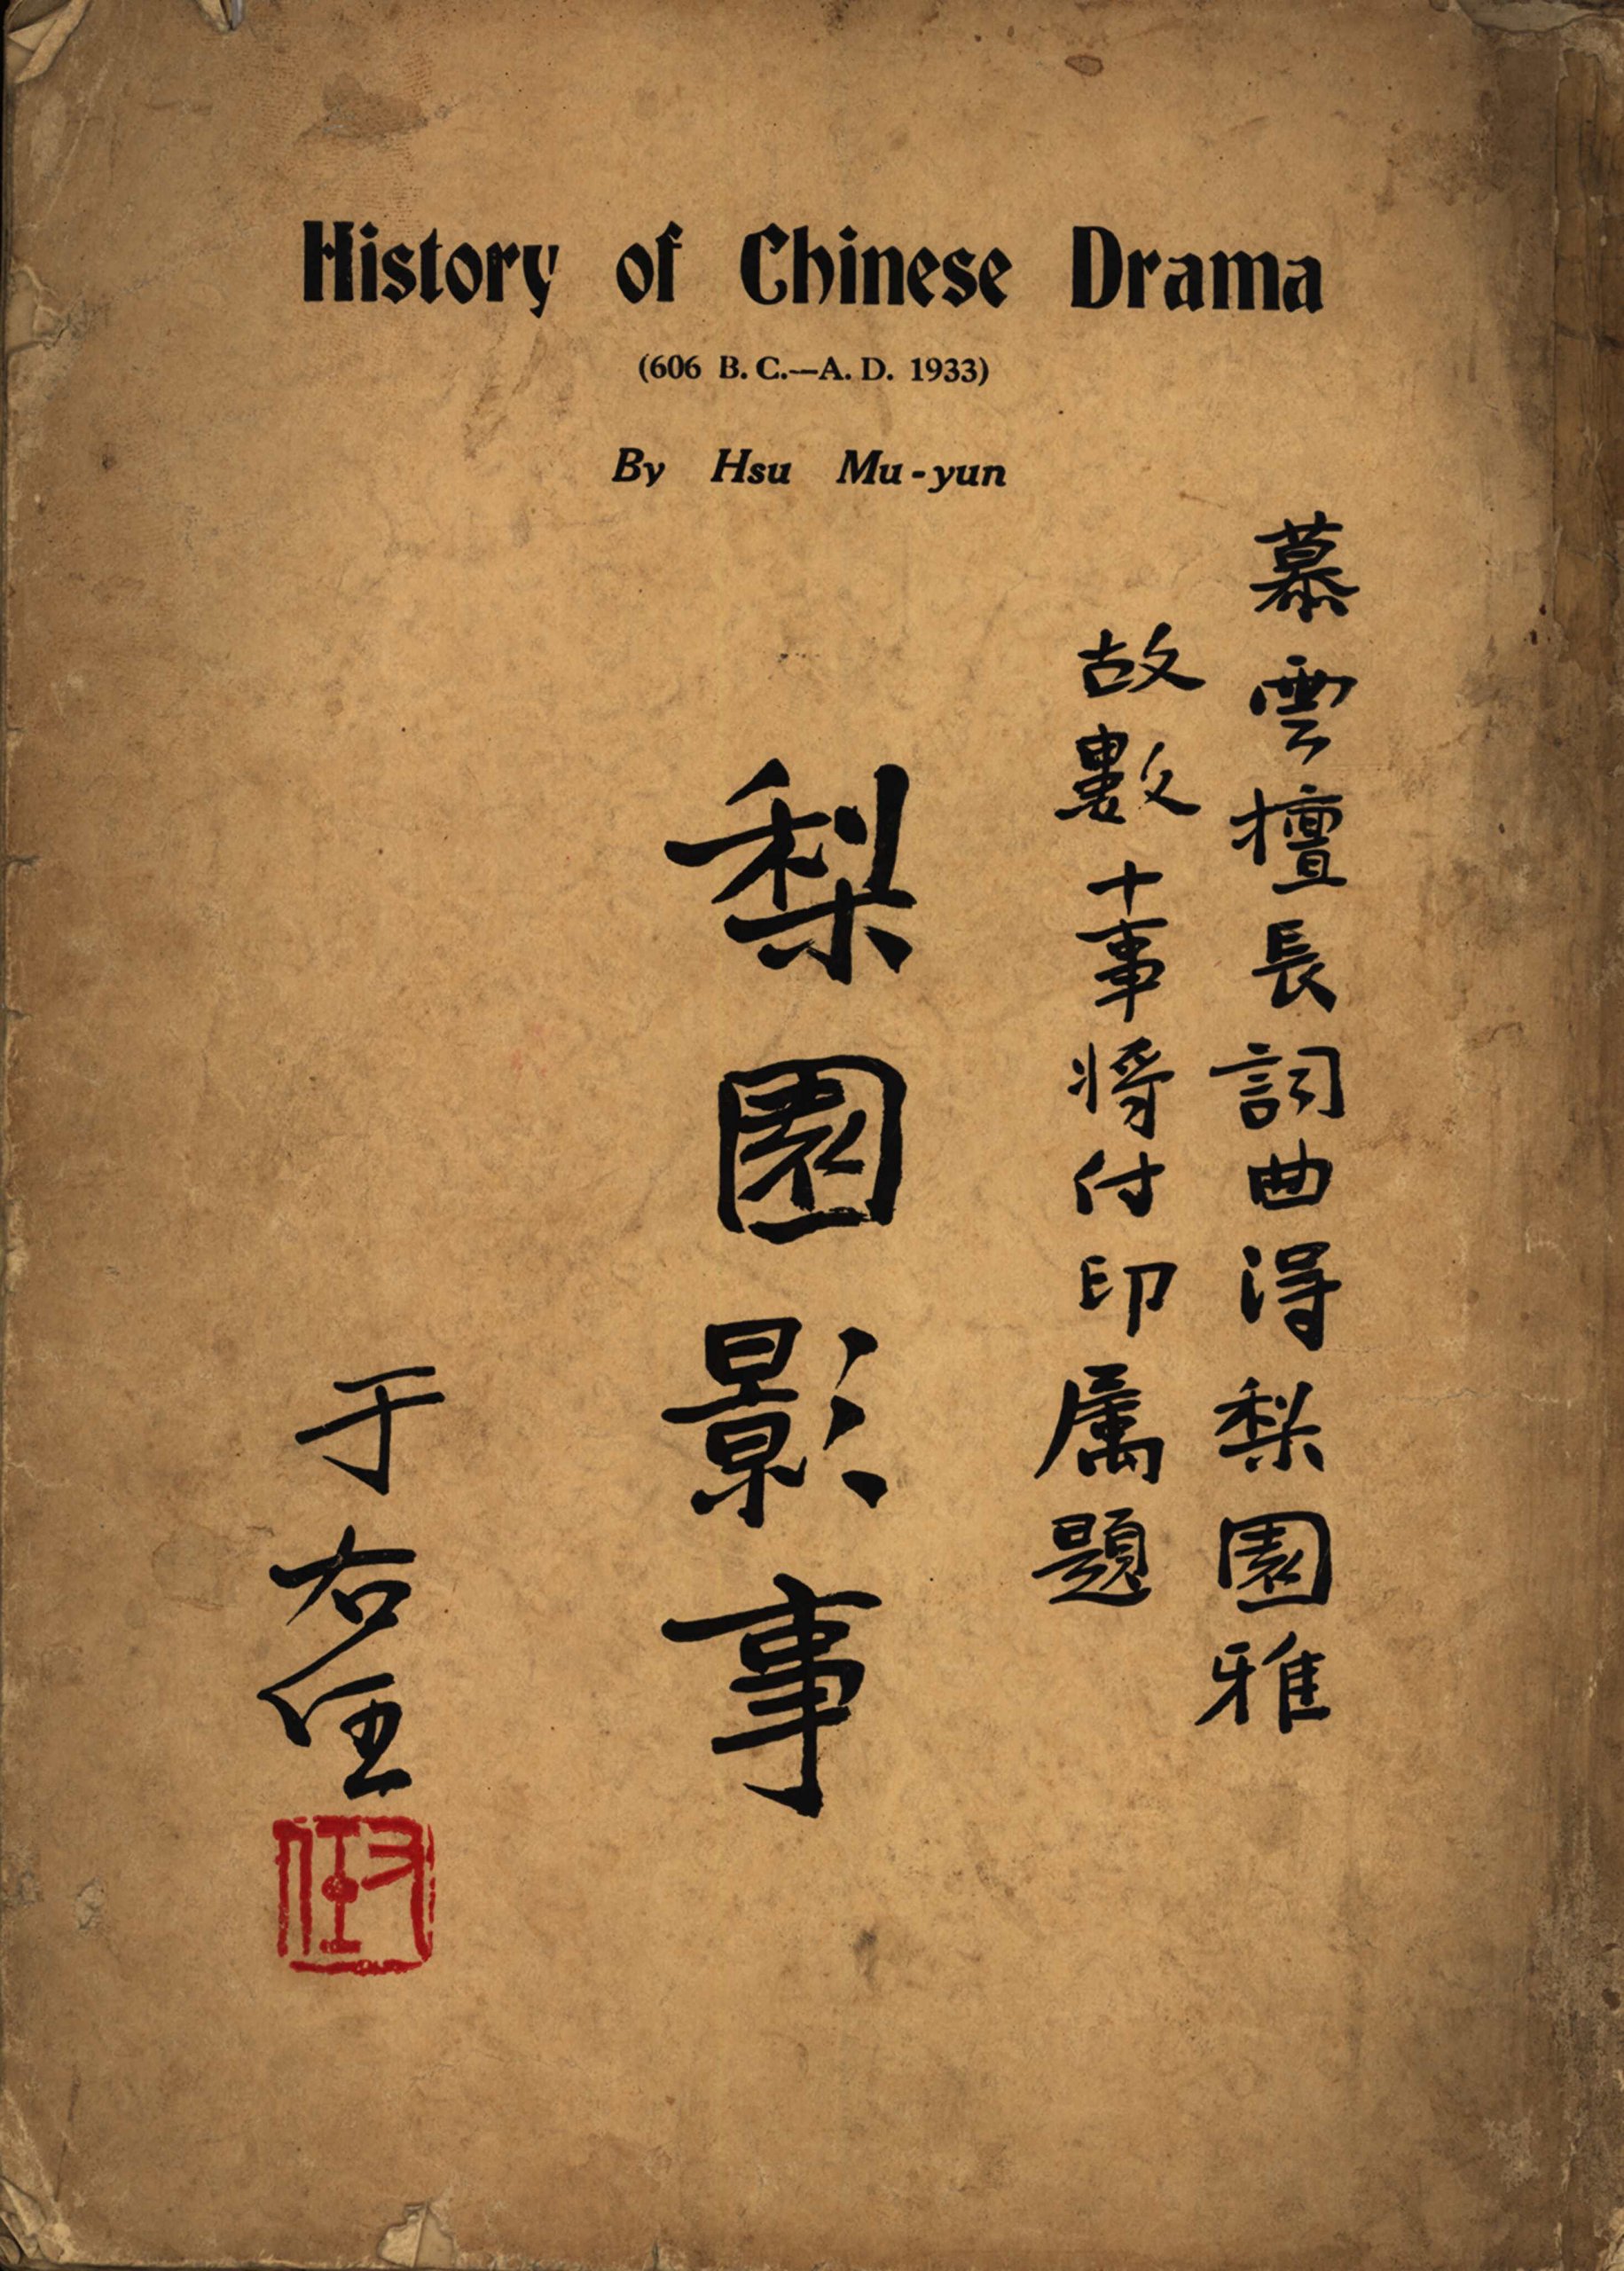 History of Chinese Drama
(606 B. C.—A. D. 1933)
By Hsu Mu-yun
慕雲擅長詞曲得梨園雅
故數十事將付印属題
梨園影事
于右任
右任